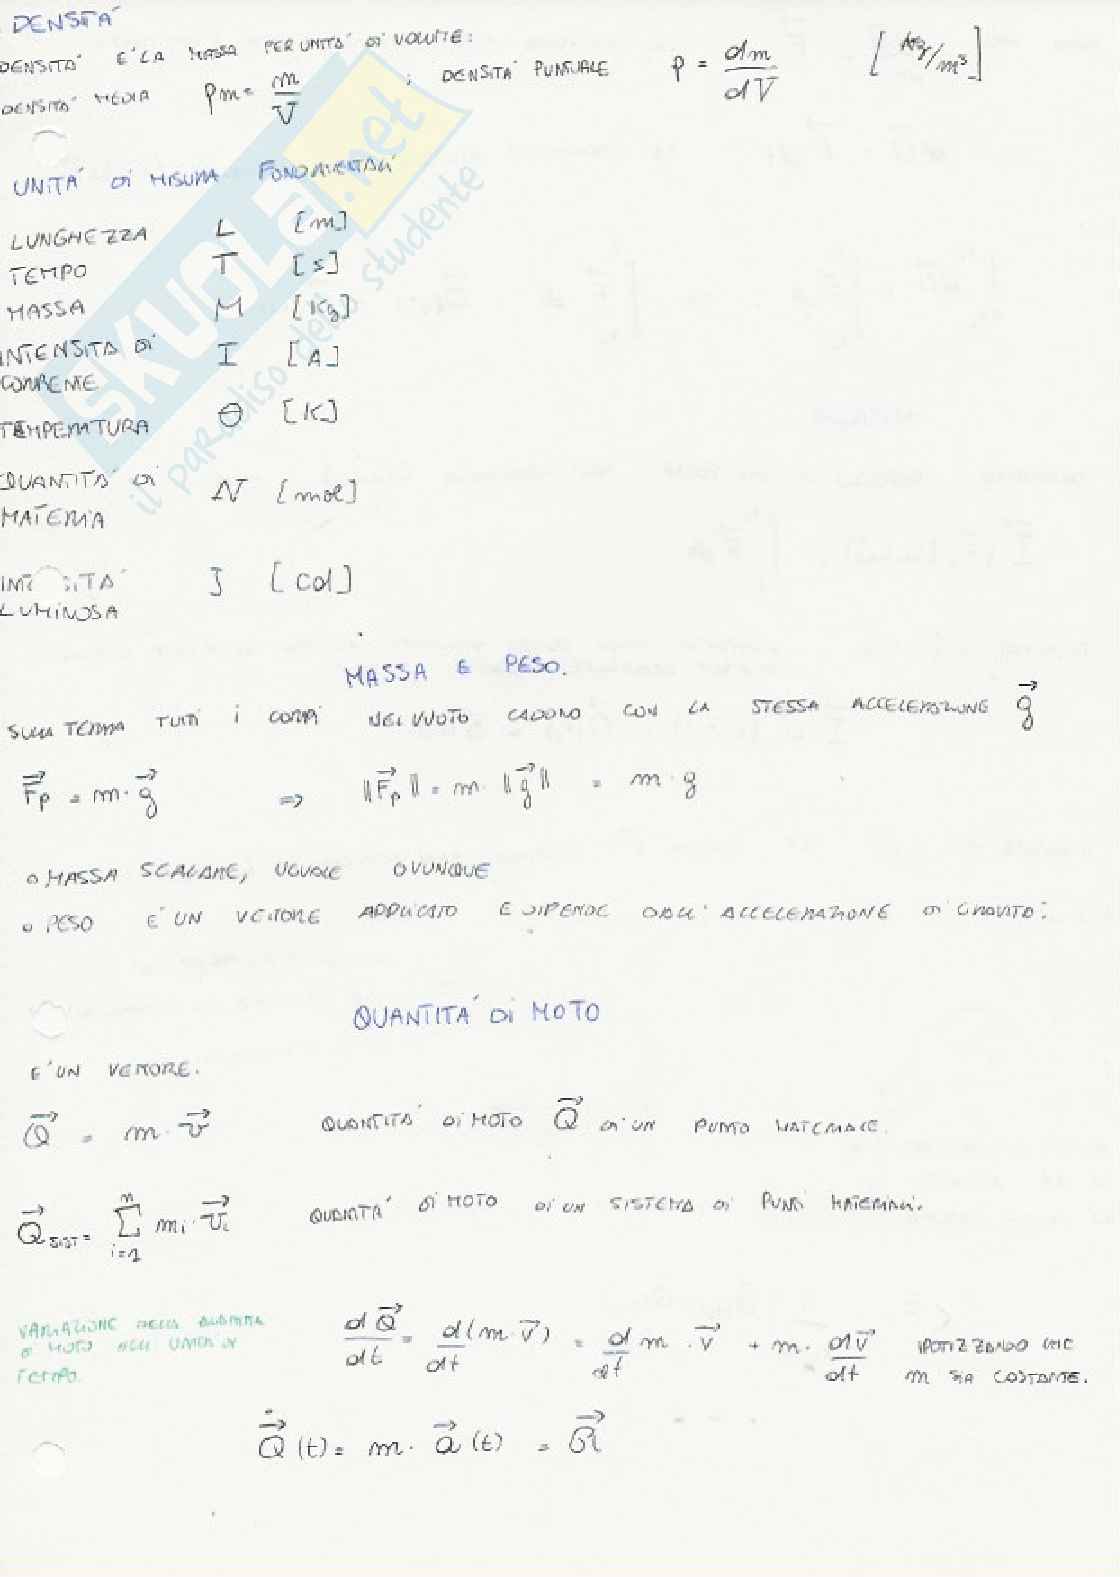 DENSITÀ
DENSITÀ È LA MASSA PER UNITÀ DI VOLUME:
DENSITÀ MEDIA ρm = m/V ; DENSITÀ PUNTUALE ρ = dm/dV [kg/m³]
UNITÀ DI MISURA FONDAMENTALI
LUNGHEZZA L [m]
TEMPO T [s]
MASSA M [Kg]
INTENSITÀ DI CORRENTE I [A]
TEMPERATURA Θ [K]
QUANTITÀ DI MATERIA N [mol]
INTENSITÀ LUMINOSA J [cd]
SKUOLA.net
il paradiso dello studente
MASSA E PESO.
SULLA TERRA TUTTI I CORPI NEL VUOTO CADONO CON LA STESSA ACCELERAZIONE g⃗
F⃗p = m · g⃗ ⇒ ‖F⃗p‖ = m · ‖g⃗‖ = m · g
o MASSA SCALARE, UGUALE OVUNQUE
o PESO È UN VETTORE APPLICATO E DIPENDE DALL'ACCELERAZIONE DI GRAVITÀ.
QUANTITÀ DI MOTO
È UN VETTORE.
Q⃗ = m · v⃗ QUANTITÀ DI MOTO Q⃗ DI UN PUNTO MATERIALE.
Q⃗SIST = Σ i=1 n mi · v⃗i QUANTITÀ DI MOTO DI UN SISTEMA DI PUNTI MATERIALI.
VARIAZIONE DELLA QUANTITÀ
DI MOTO NELL'UNITÀ DI
TEMPO.
dQ⃗/dt = d(m · v⃗)/dt = d/dt m · v⃗ + m · dv⃗/dt IPOTIZZANDO CHE
m SIA COSTANTE.
Q⃗̇(t) = m · a⃗(t) = R⃗